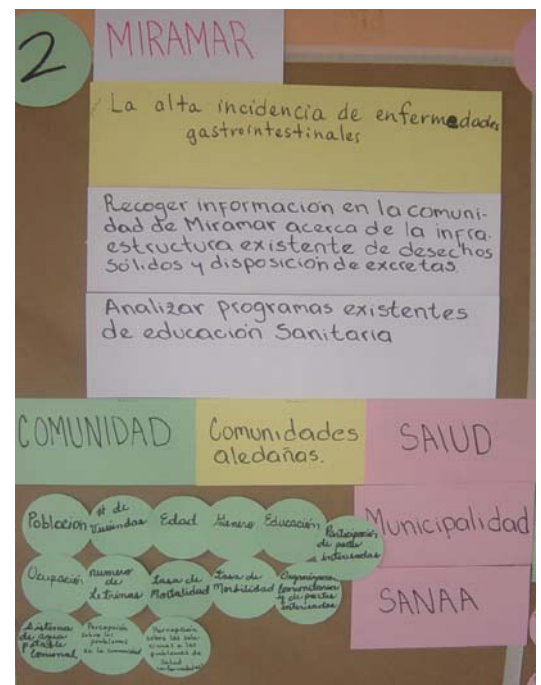 2
MIRAMAR
La alta incidencia de enfermedades
gastrointestinales
Recoger información en la comuni-
dad de Miramar acerca de la infra-
estructura existente de desechos
sólidos y disposición de excretas.
Analizar programas existentes
de educación Sanitaria
COMUNIDAD
Comunidades
aledañas.
SALUD
Municipalidad
SANAA
Poblacion
# de
Viviendas
Edad
Genero
Educación
Participación
de partes
interesadas
Ocupación
numero
de
Letrinas
tasa de
Mortalidad
tasa de
Morbilidad
Organización
comunitaria
y de partes
interesadas
Sistema
de agua
potable
comunal
Percepción
sobre los
problemas
en la comunidad
Percepción
sobre las solu-
ciones a los
problemas de
Salud